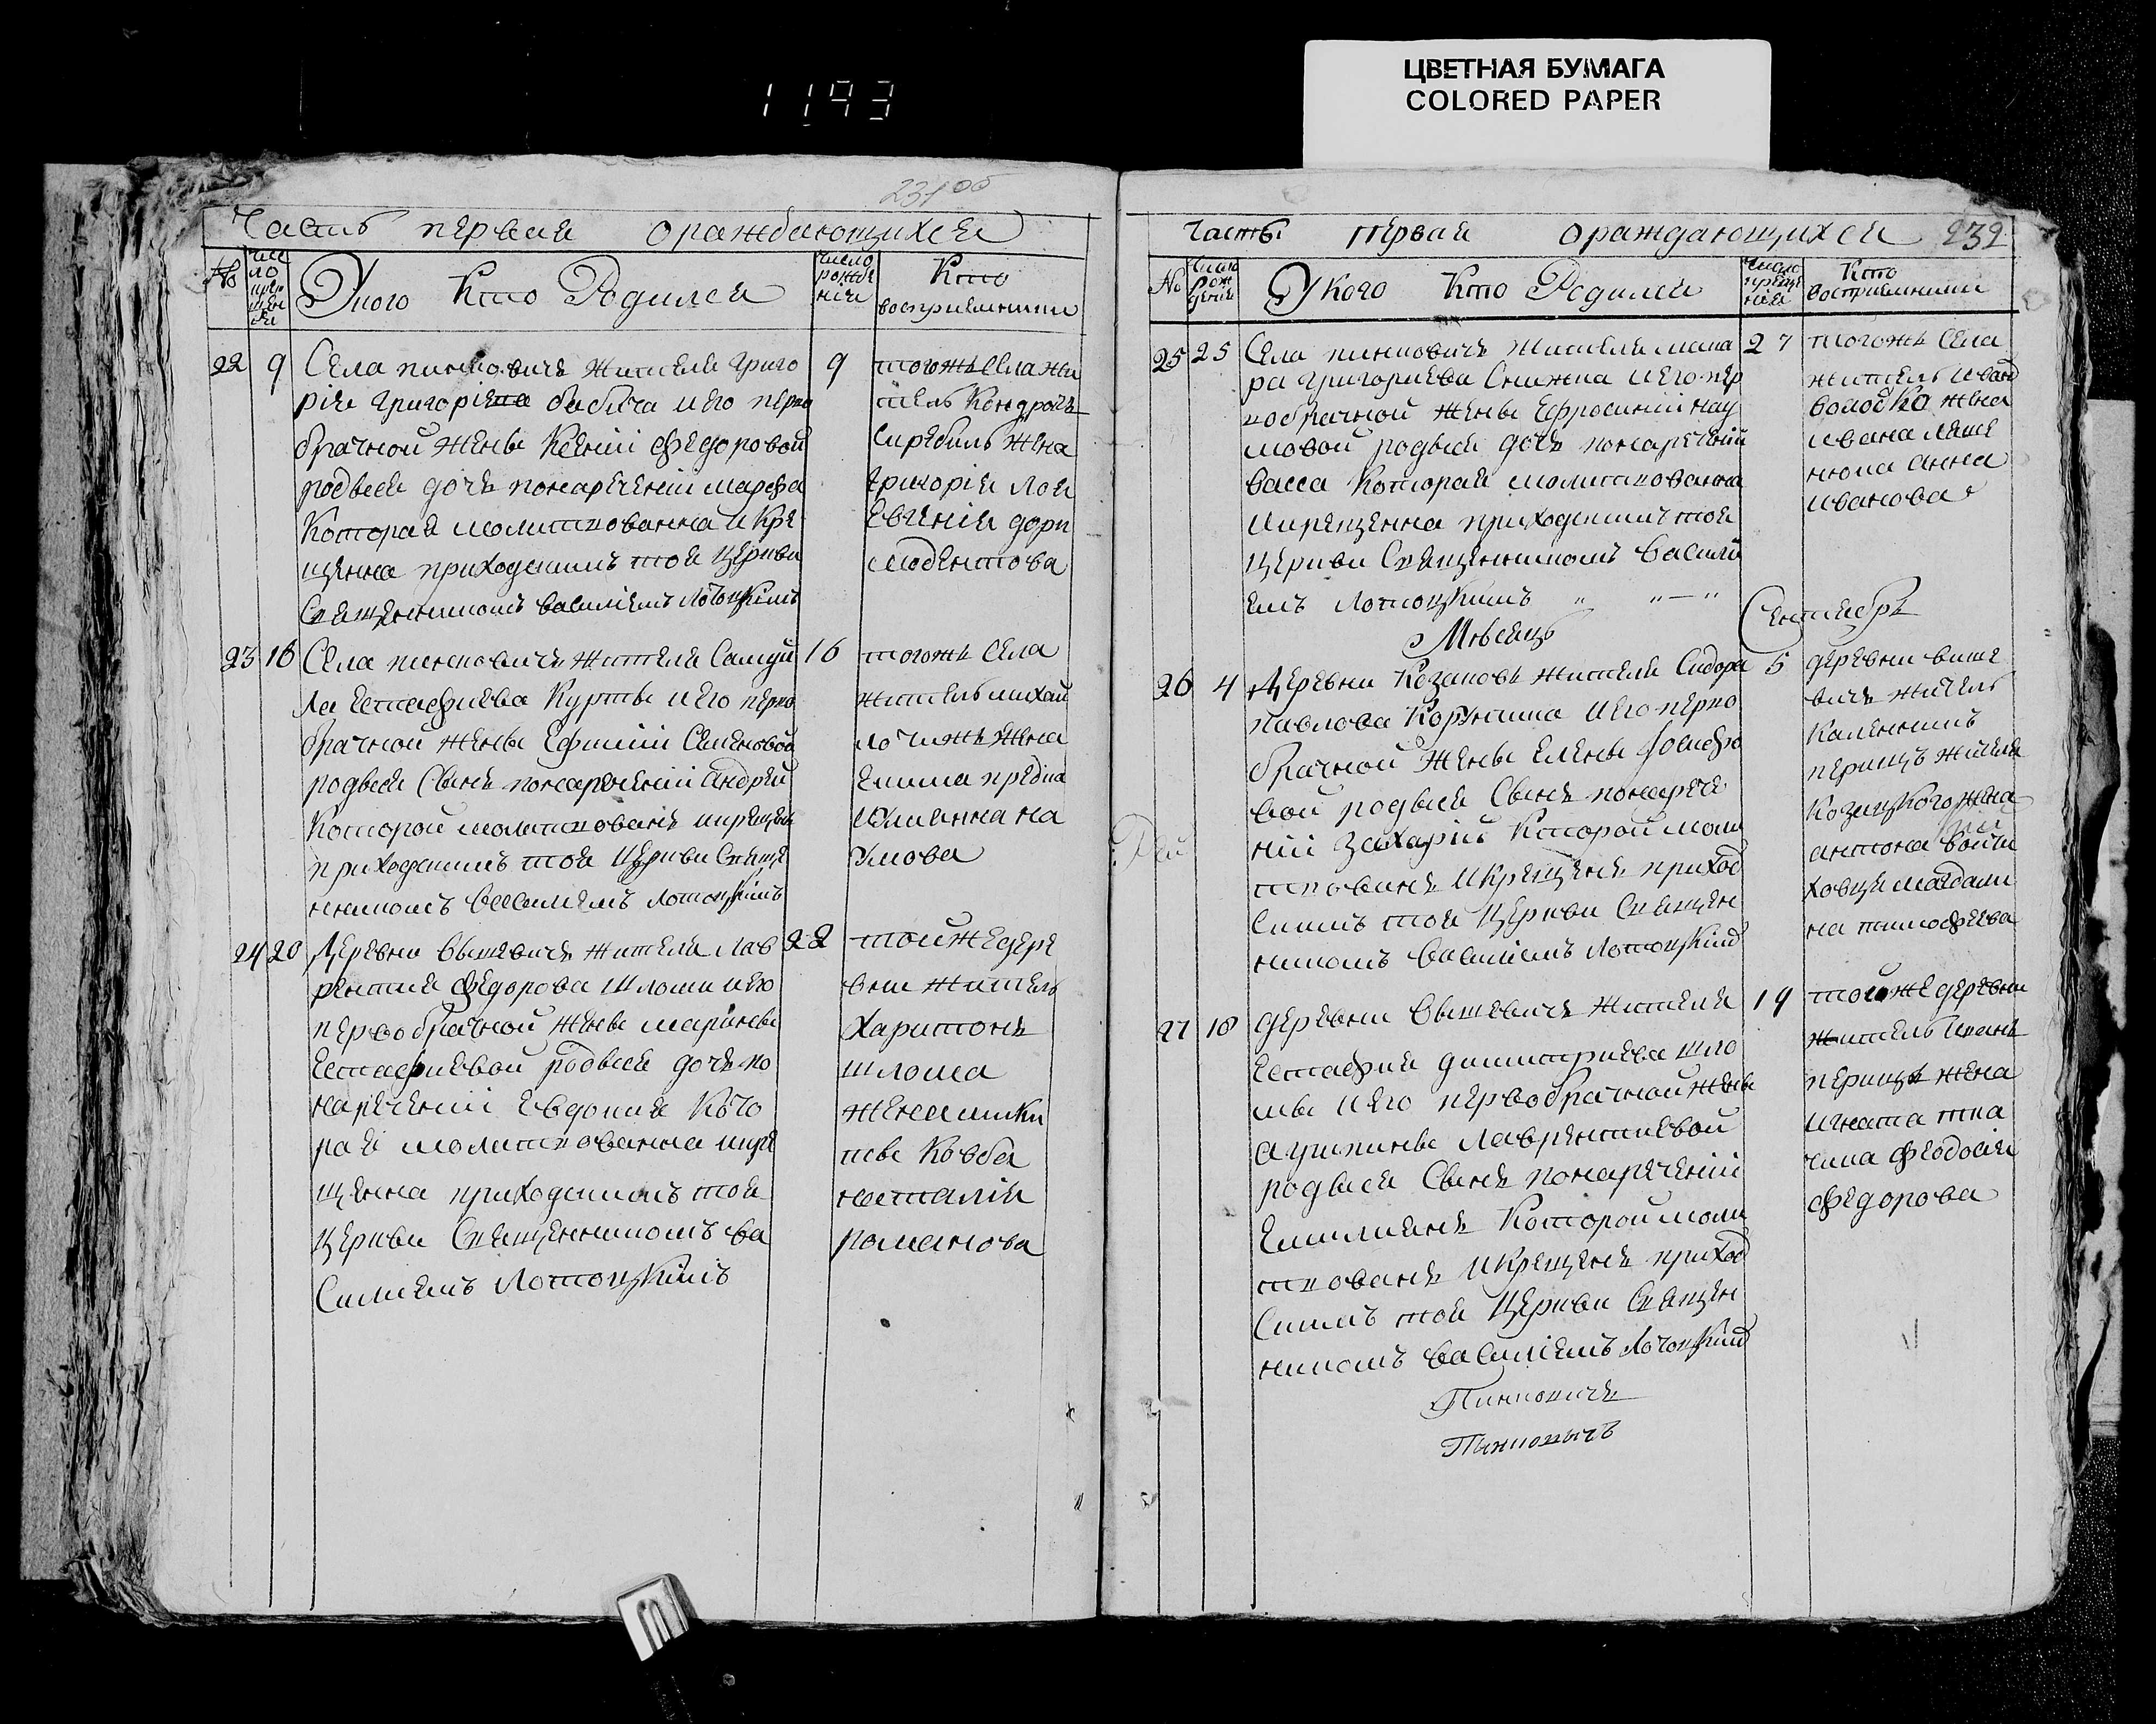 ЦВЕТНАЯ БУМАГА
COLORED PAPER
1193
231об
Часть первая ораждающихся
№
Число крещения
Укого Кто Родился
число рожденія
Кто восприемники
22 9 9
Села пинковичъ жителя Григо
рія Григоріева бабича иего перво
брачной жены Ксеніи федоровой
родвся дочь понареченіи марфа
Которая молитвованна икре
щенна приходскимъ тоя церкви
Священникомъ василіемъ лотоцкимъ
тогожъ села жи
тель Кондратъ
жена
григорія
Евгенія
модентова
23 16 16
Села пинковичъ жителя Самуи
ла естафиева Курты иего перво
брачной жены Ефимии Семеновой
родвся Сынъ понареченіи андрей
Которой молитвованъ икрещенъ
приходскимъ тоя Церкви Свяще
нникомъ василиемъ лотоцкимъ
тогожъ села
житель михай
жена
Юлианна на
умова
24 20 22
Деревни вышевичъ жителя лав
рентия федорова шломи иего
первобрачной жены марины
естафиевой родвся дочь по
нареченіи Евдокия Кото
рая молитвованна икре
щенна приходскимъ тоя
церкви Священникомъ ва
Силиемъ лотоцкимъ
тойже дере
вни житель
Харитонъ
шлома
жена мики
ты Ковба
наталія
романова
Часть первая ораждающихся 232
№
число рожденія
Укого Кто Родился
число крещенія
Кто восприемники
25 25 27
Села пинковичъ жителя мака
ра григориева Снижка иего пер
вобрачной жены Ефросиніи нау
мовой родвся дочь понареченіи
васса Которая молитвованна
икрещенна приходскимъ тоя
церкви Священникомъ васили
емъ лотоцкимъ
тогожъ села
житель иванъ
жена
ивана
анна
иванова
Мѣсяцъ Сентябрь
26 4 5
Деревни Козляковъ жителя Сидора
павлова иего перво
брачной жены Елены
вой родвся Сынъ понарече
ніи Захарій Которой моли
твованъ икрещенъ приход
Скимъ тоя церкви Священ
никомъ василиемъ лотоцкимъ
деревни выше
вичъ житель
жителя
жена
антона войти
ховца магдали
на тимофеева
27 18 19
деревни вышевичъ жителя
естафия димитриева шло
мы иего первобрачной жены
акилины лаврентиевой
родвся Сынъ понареченіи
Емилиянъ Которой моли
твованъ икрещенъ приход
Скимъ тоя церкви Священ
никомъ василиемъ лотоцкимъ
тойже деревни
житель иванъ
жена
игната тка
чика феодосия
федорова
Пинковичъ
Пинковичъ